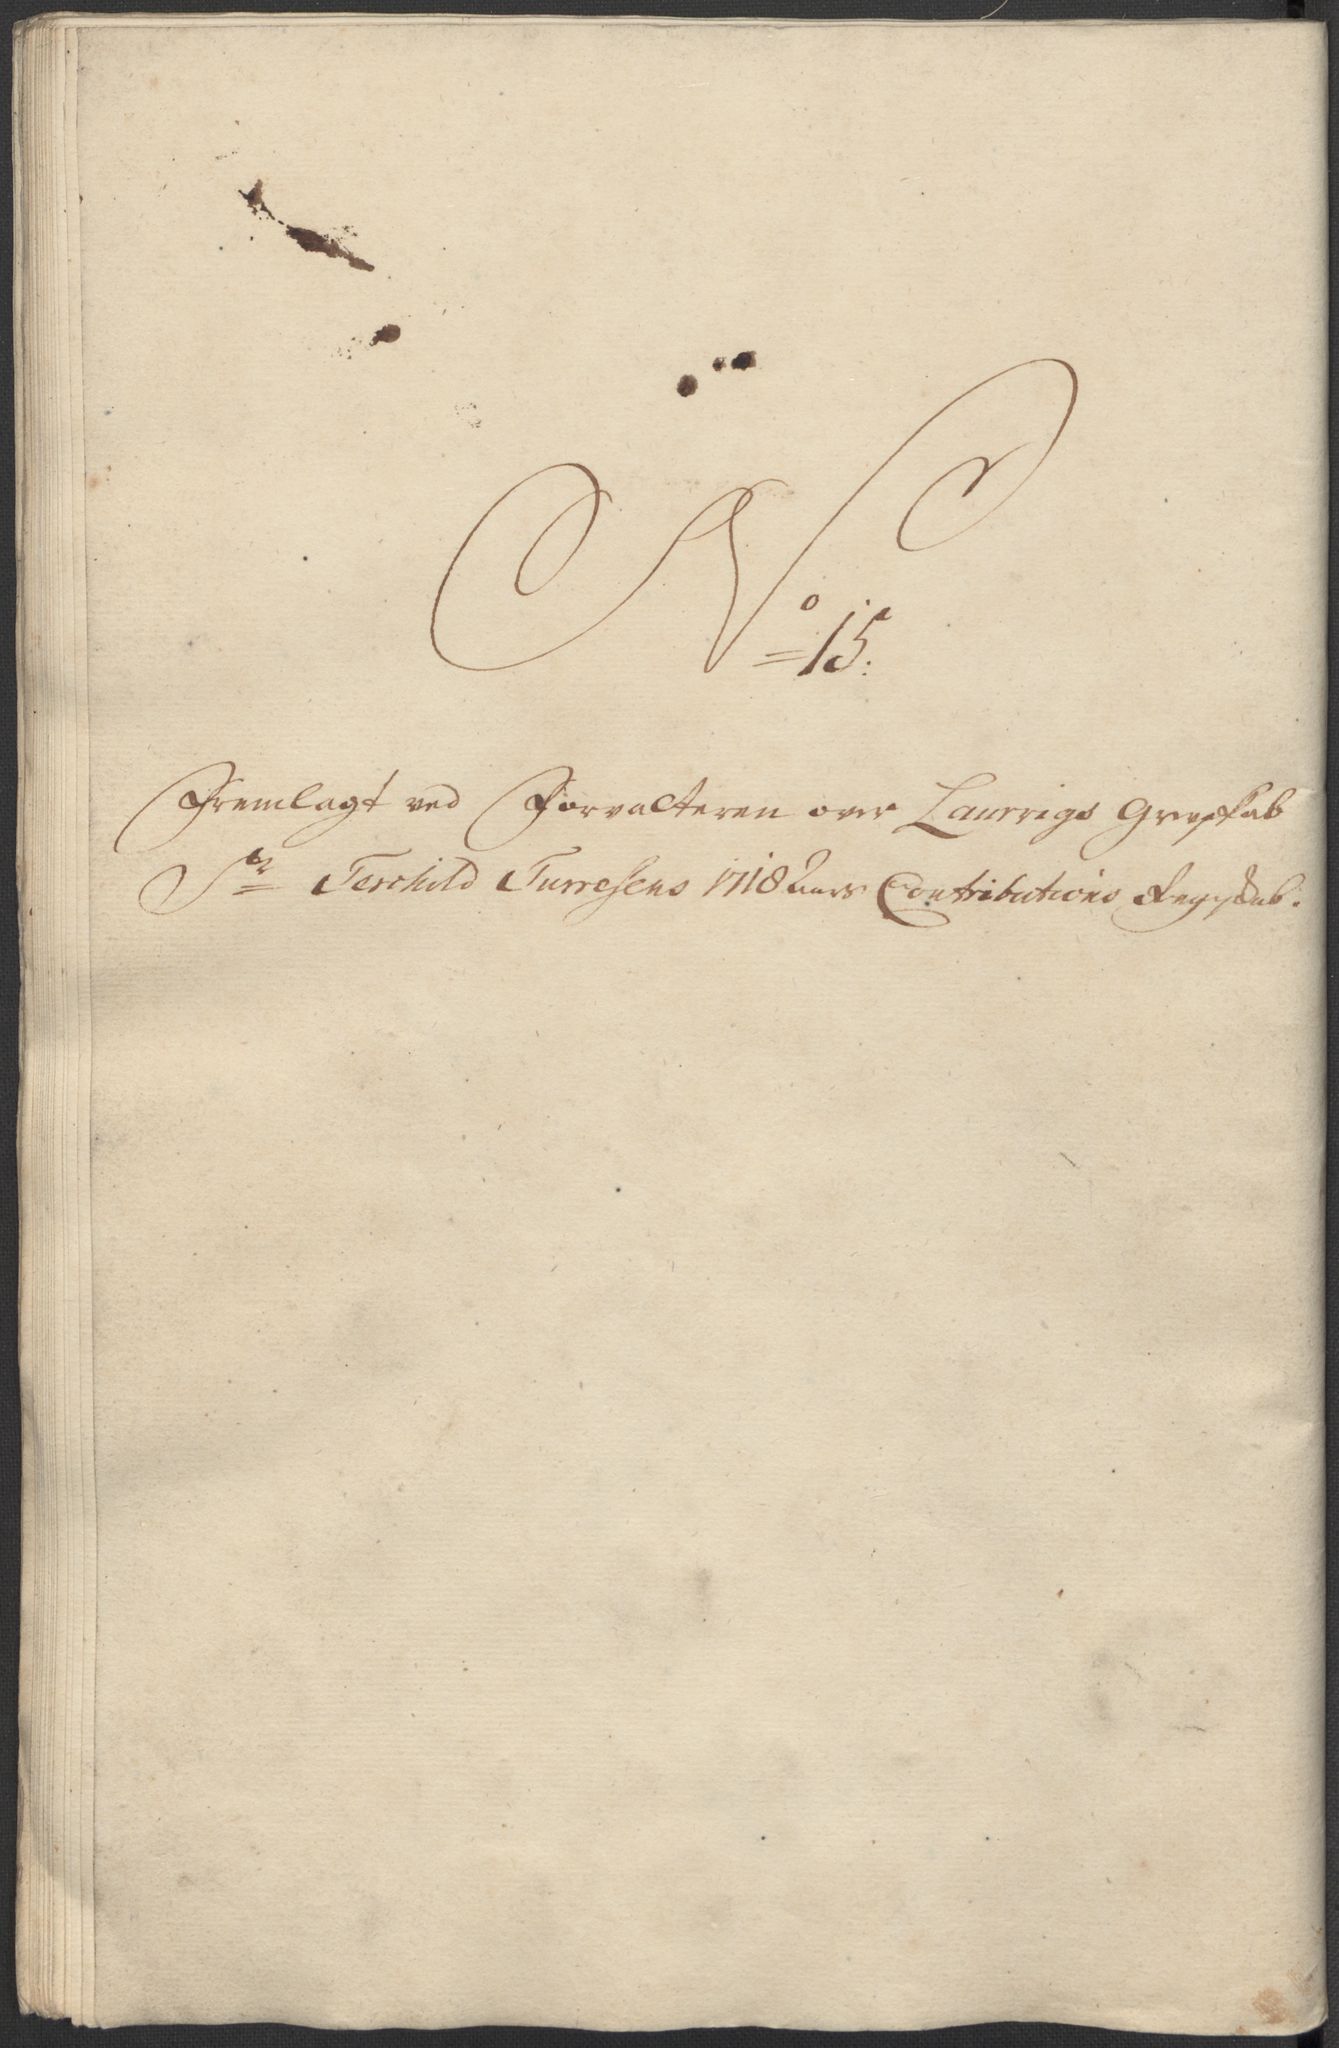 No 15.
Fremlagt ved Forvalteren over Laurvigs Grefskab
Sr Terchild Turresens 1718 Aars Contributions Regskab.